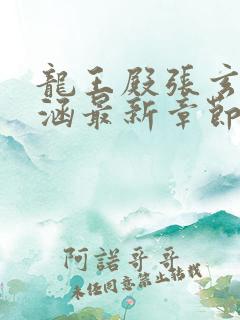 龍王殿張玄
涵最新章節
阿諾哥哥
未經同意禁止轉載